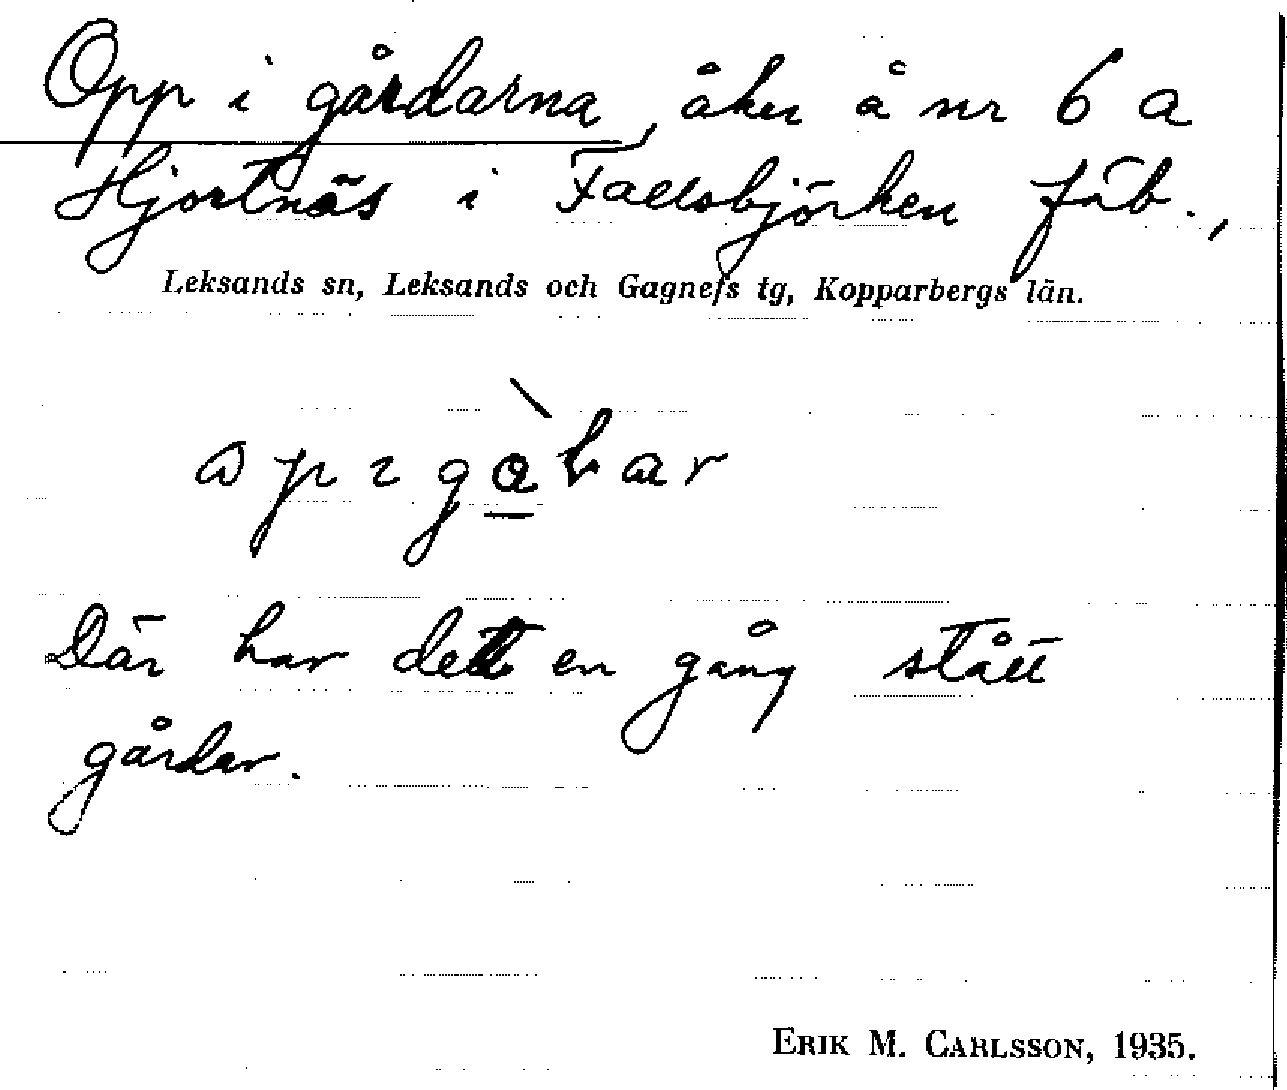 Opp i gårdarna, åker å nr 6 a
Hjortnäs i Fallsbjörken fäb.,
Leksands sn, Leksands och Gagnefs tg, Kopparbergs län.
Där har dett en gång stått
gårdar.
ERIK M. CARLSSON, 1935.